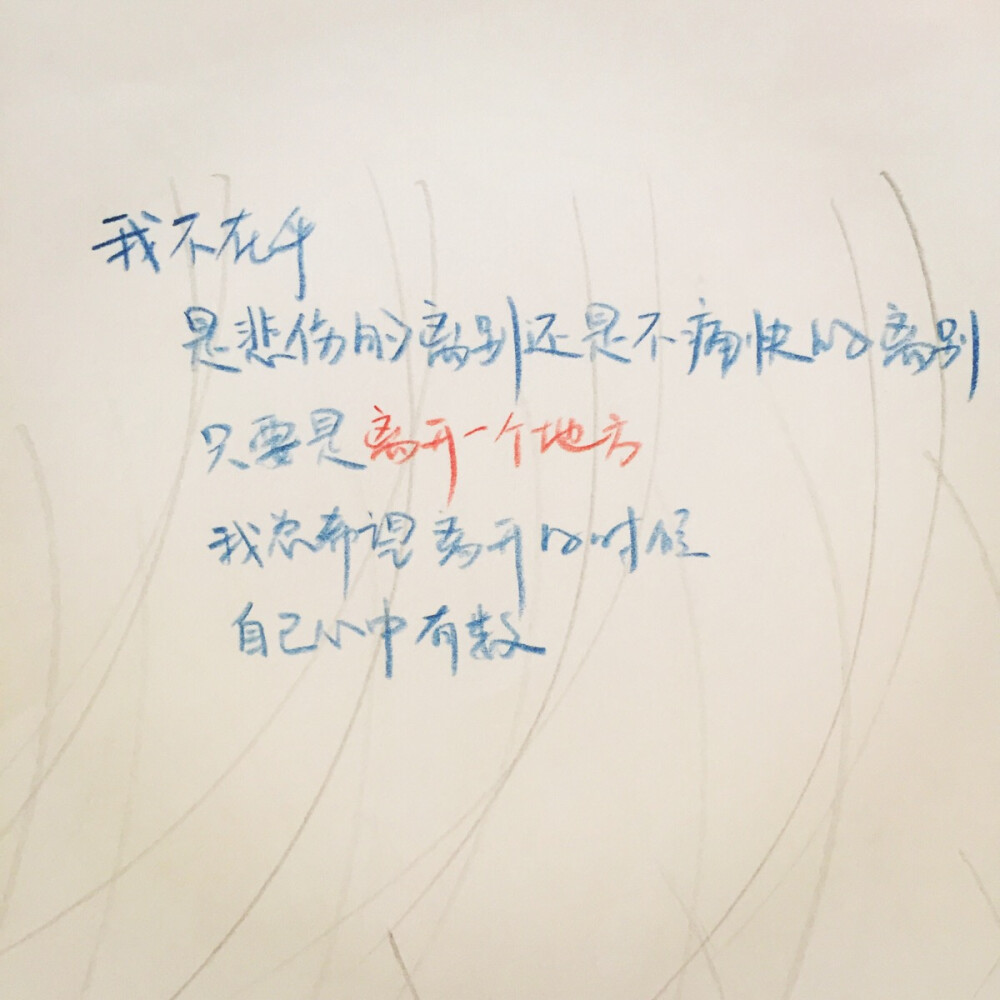 我不在乎
是悲伤的离别还是不痛快的离别
只要是离开一个地方
我总希望离开的时候
自己心中有数